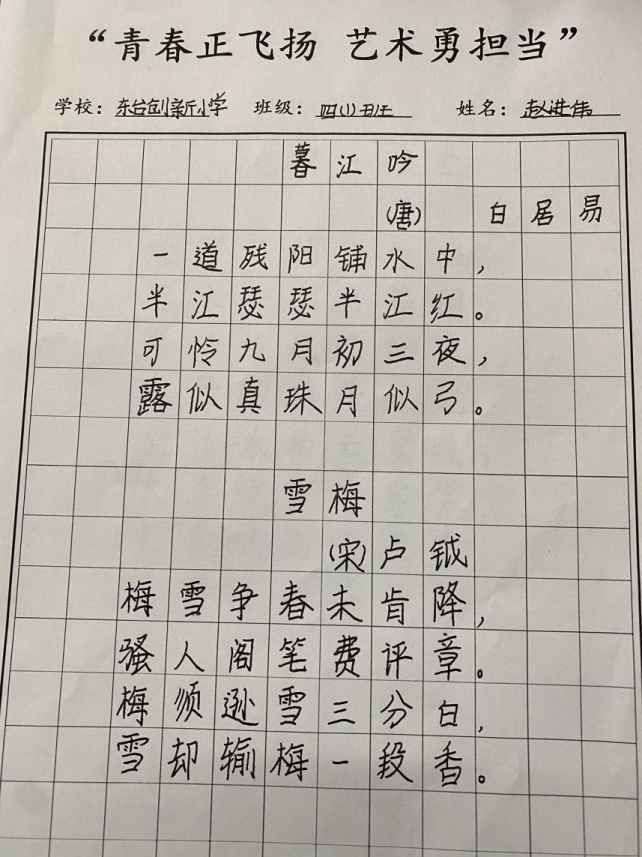 “青春正飞扬 艺术勇担当”
学校：东台创新小学 班级：四(1)班 姓名：赵进伟
暮江吟
(唐) 白居易
一道残阳铺水中，
半江瑟瑟半江红。
可怜九月初三夜，
露似真珠月似弓。
雪梅
(宋)卢钺
梅雪争春未肯降，
骚人阁笔费评章。
梅须逊雪三分白，
雪却输梅一段香。